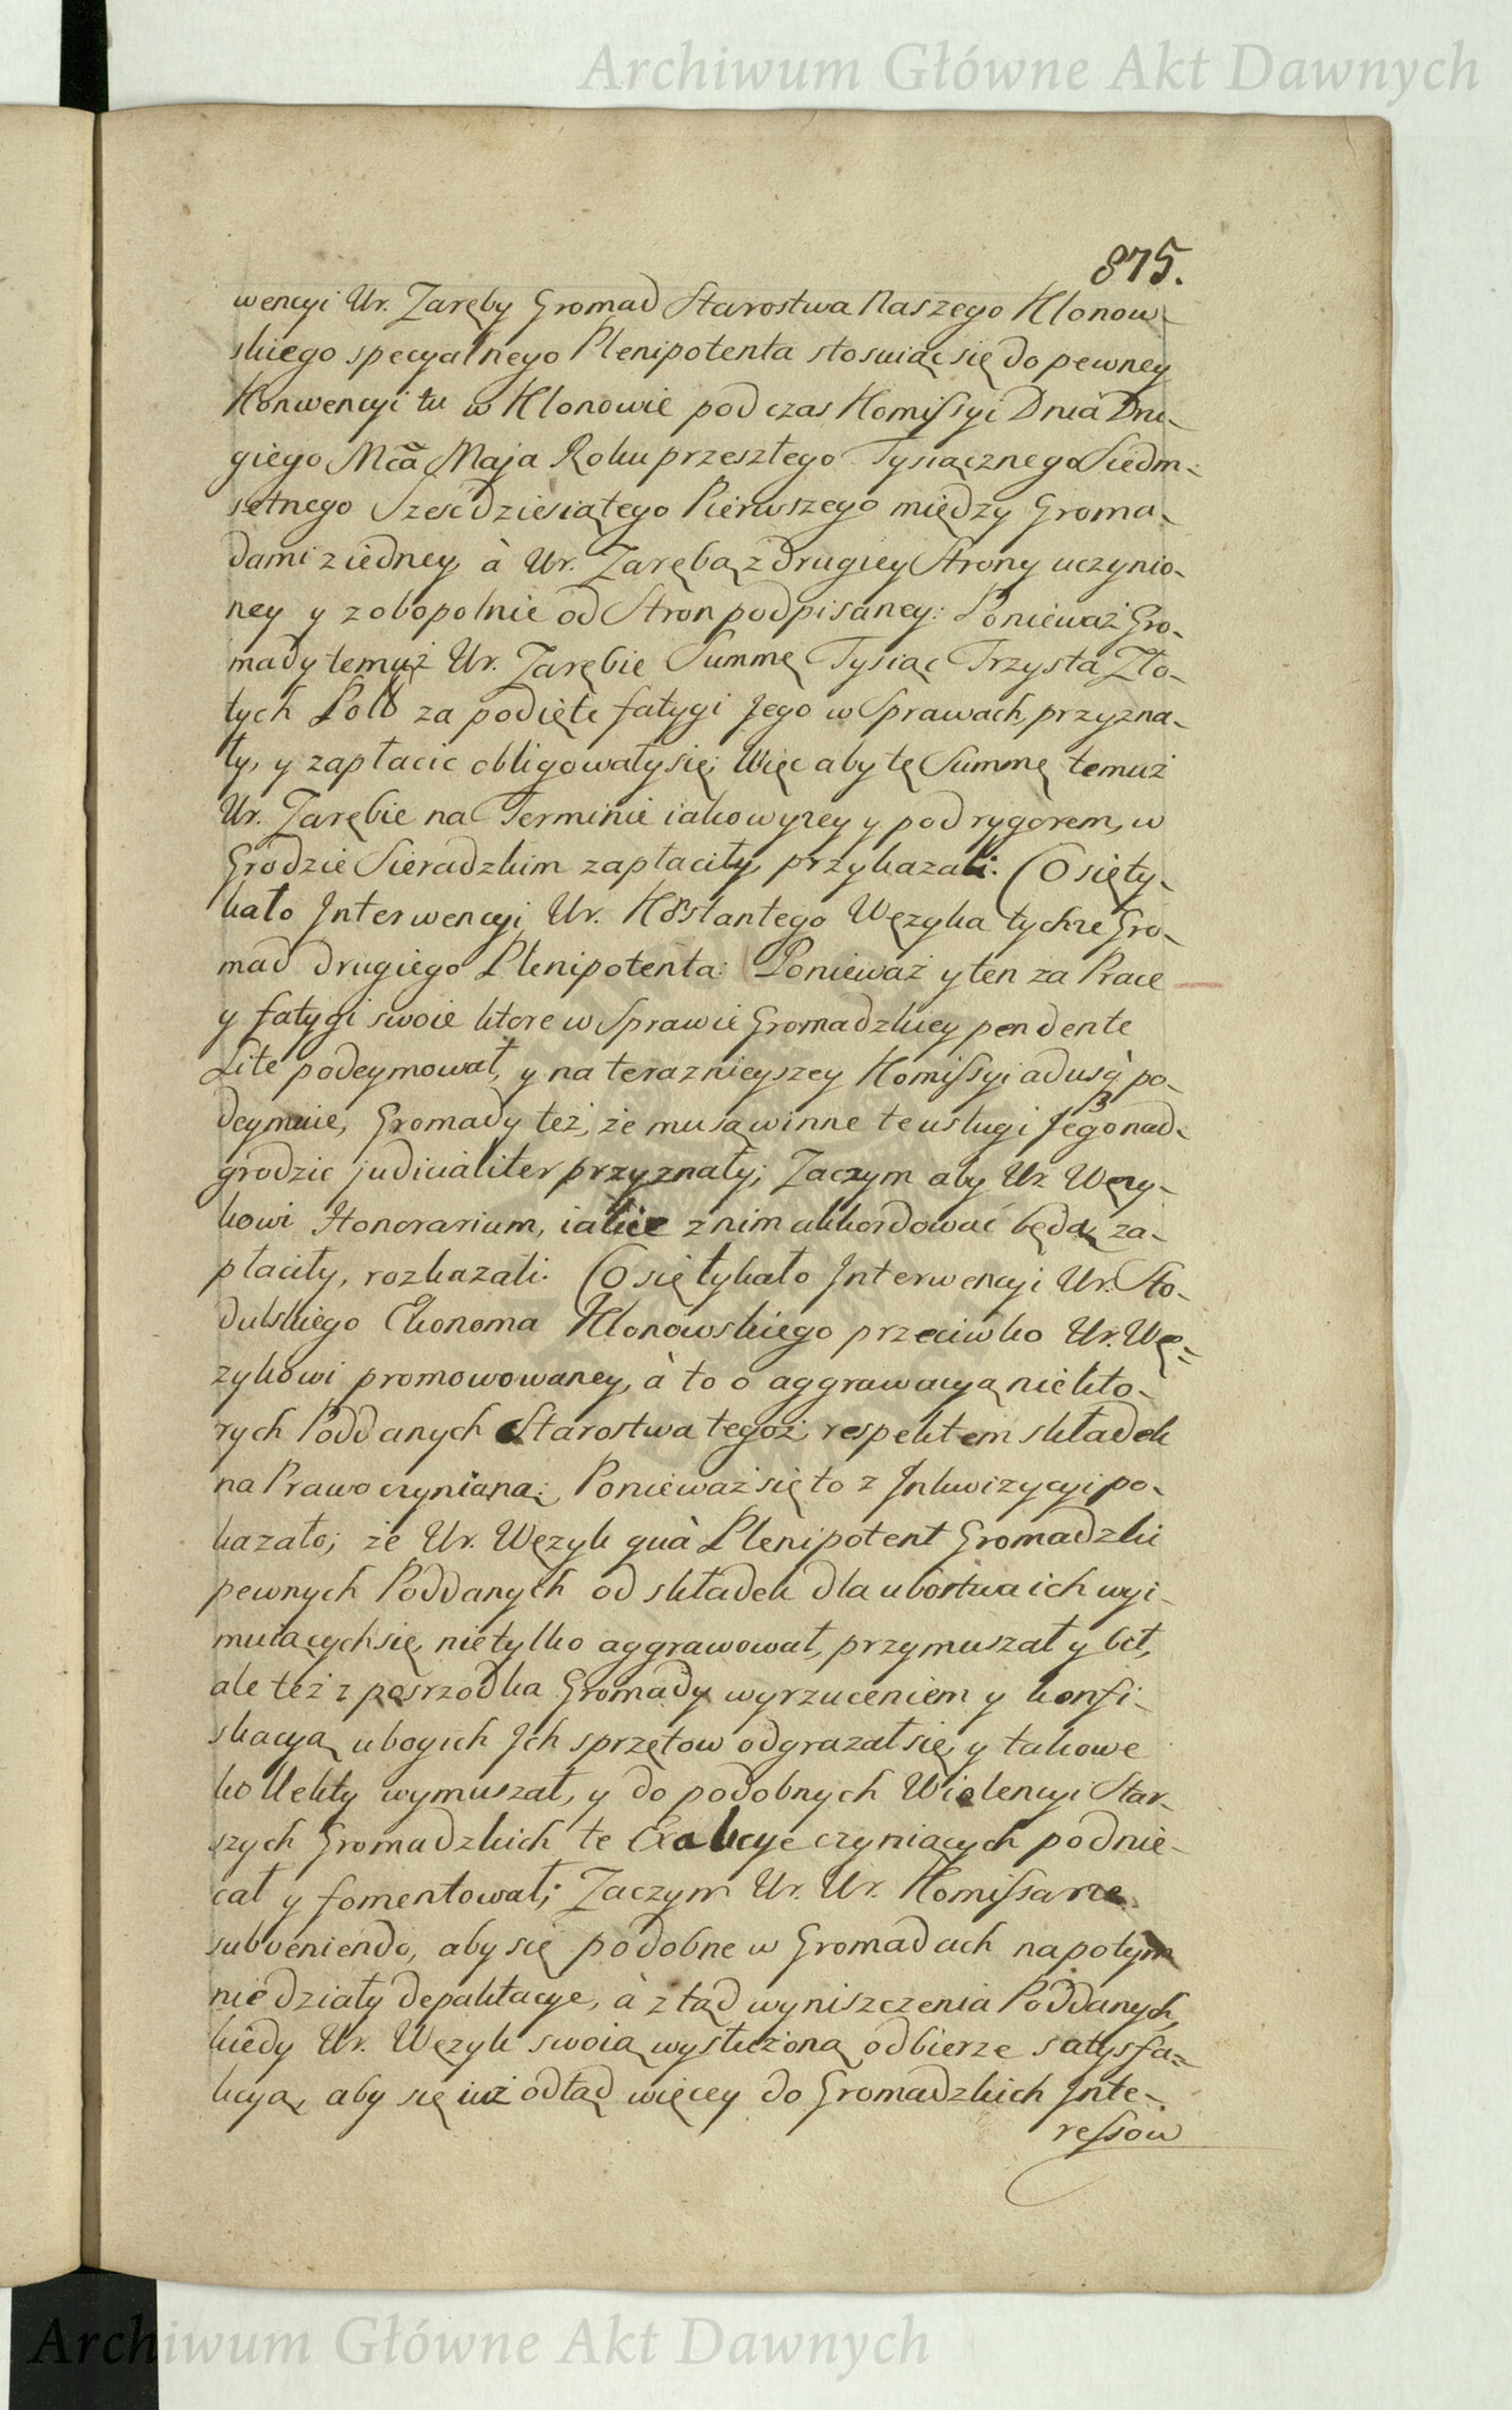 Archiwum Główne Akt Dawnych
875.
wencyi Ur. Zaręby Gromad Starostwa Naszego Klonow-
skiego specyalnego Plenipotenta stosuiąc się do pewney
Konwencyi tu w Klonowie podczas Komissyi Dnia Dru-
giego Mca Maja Roku przeszłego Tysiącznego Siedm-
setnego Sześćdziesiątego Pierwszego między Groma-
dami z iedney, à Ur. Zarębą z drugiey Strony uczynio-
ney y zobopolnie od Stron podpisaney: Ponieważ Gro-
mady temuż Ur. Zarębie Summę Tysiąc Trzysta Zło-
tych Pols za podięte fatygi Jego w Sprawach, przyzna-
ły, y zapłacic obligowały się; Więc aby tę Summę temuż
Ur. Zarębie na Terminie iako wyżey y pod rygorem, w
Grodzie Sieradzkim zapłaciły, przykazali: Co się ty-
kało Interwencyi Ur. Konstantego Wężyka tychże Gro-
mad drugiego Plenipotenta: Ponieważ y ten za Prace
y fatygi swoie ktore w Sprawie Gromadzkiey pendente
Lite podeymował, y na teraznieyszey Komissyi adusq po-
deymuie, Gromady też, że mu są winne te usługi Jego nad-
grodzic judicialiter przyznały; Zaczym aby Ur. Węży-
kowi Honorarium, iakie z nim akkordować będą za-
płaciły, rozkazali: Co się tykało Interwencyi Ur. Sto-
dulskiego Ekonoma Klonowskiego przeciwko Ur. Wę-
zykowi promowowaney, à to o aggrawacyą niekto-
rych Poddanych Starostwa tegoż, respektem składek
na Prawo czynianą: Ponieważ się to z Inkwizycyi po-
kazało; że Ur. Wężyk quà Plenipotent Gromadzki
pewnych Poddanych od składek dla ubostwa ich wyi-
muiących się, nie tylko aggrawował, przymuszał y bił,
ale też z posrzodka Gromady wyrzuceniem y konfi-
skacyą ubogich Ich sprzętow odgrazał się, y takowe
kollekty wymuszał, y do podobnych Wiolencyi Star-
szych Gromadzkich te Exakcye czyniących podnie-
cał y fomentował; Zaczym Ur. Ur. Komissarze
subveniendo, aby się podobne w Gromadach napotym
nie działy depaktacye, à ztąd wyniszczenia Poddanych,
kiedy Ur. Wężyk swoią wysłużoną odbierze satysfa-
kcyą, aby się iuż odtąd więcey do Gromadzkich Inte-
ressow
Archiwum Główne Akt Dawnych